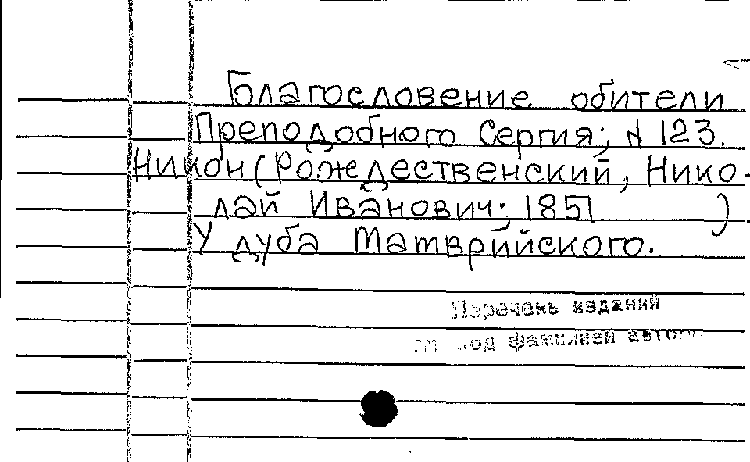 Благословение обители
Преподобного Сергия; N 123.
Никон (Рождественский, Нико-
лай Иванович; 1851 )
У дуба Мамврийского.
Перечень изданий
см. под фамилией автора